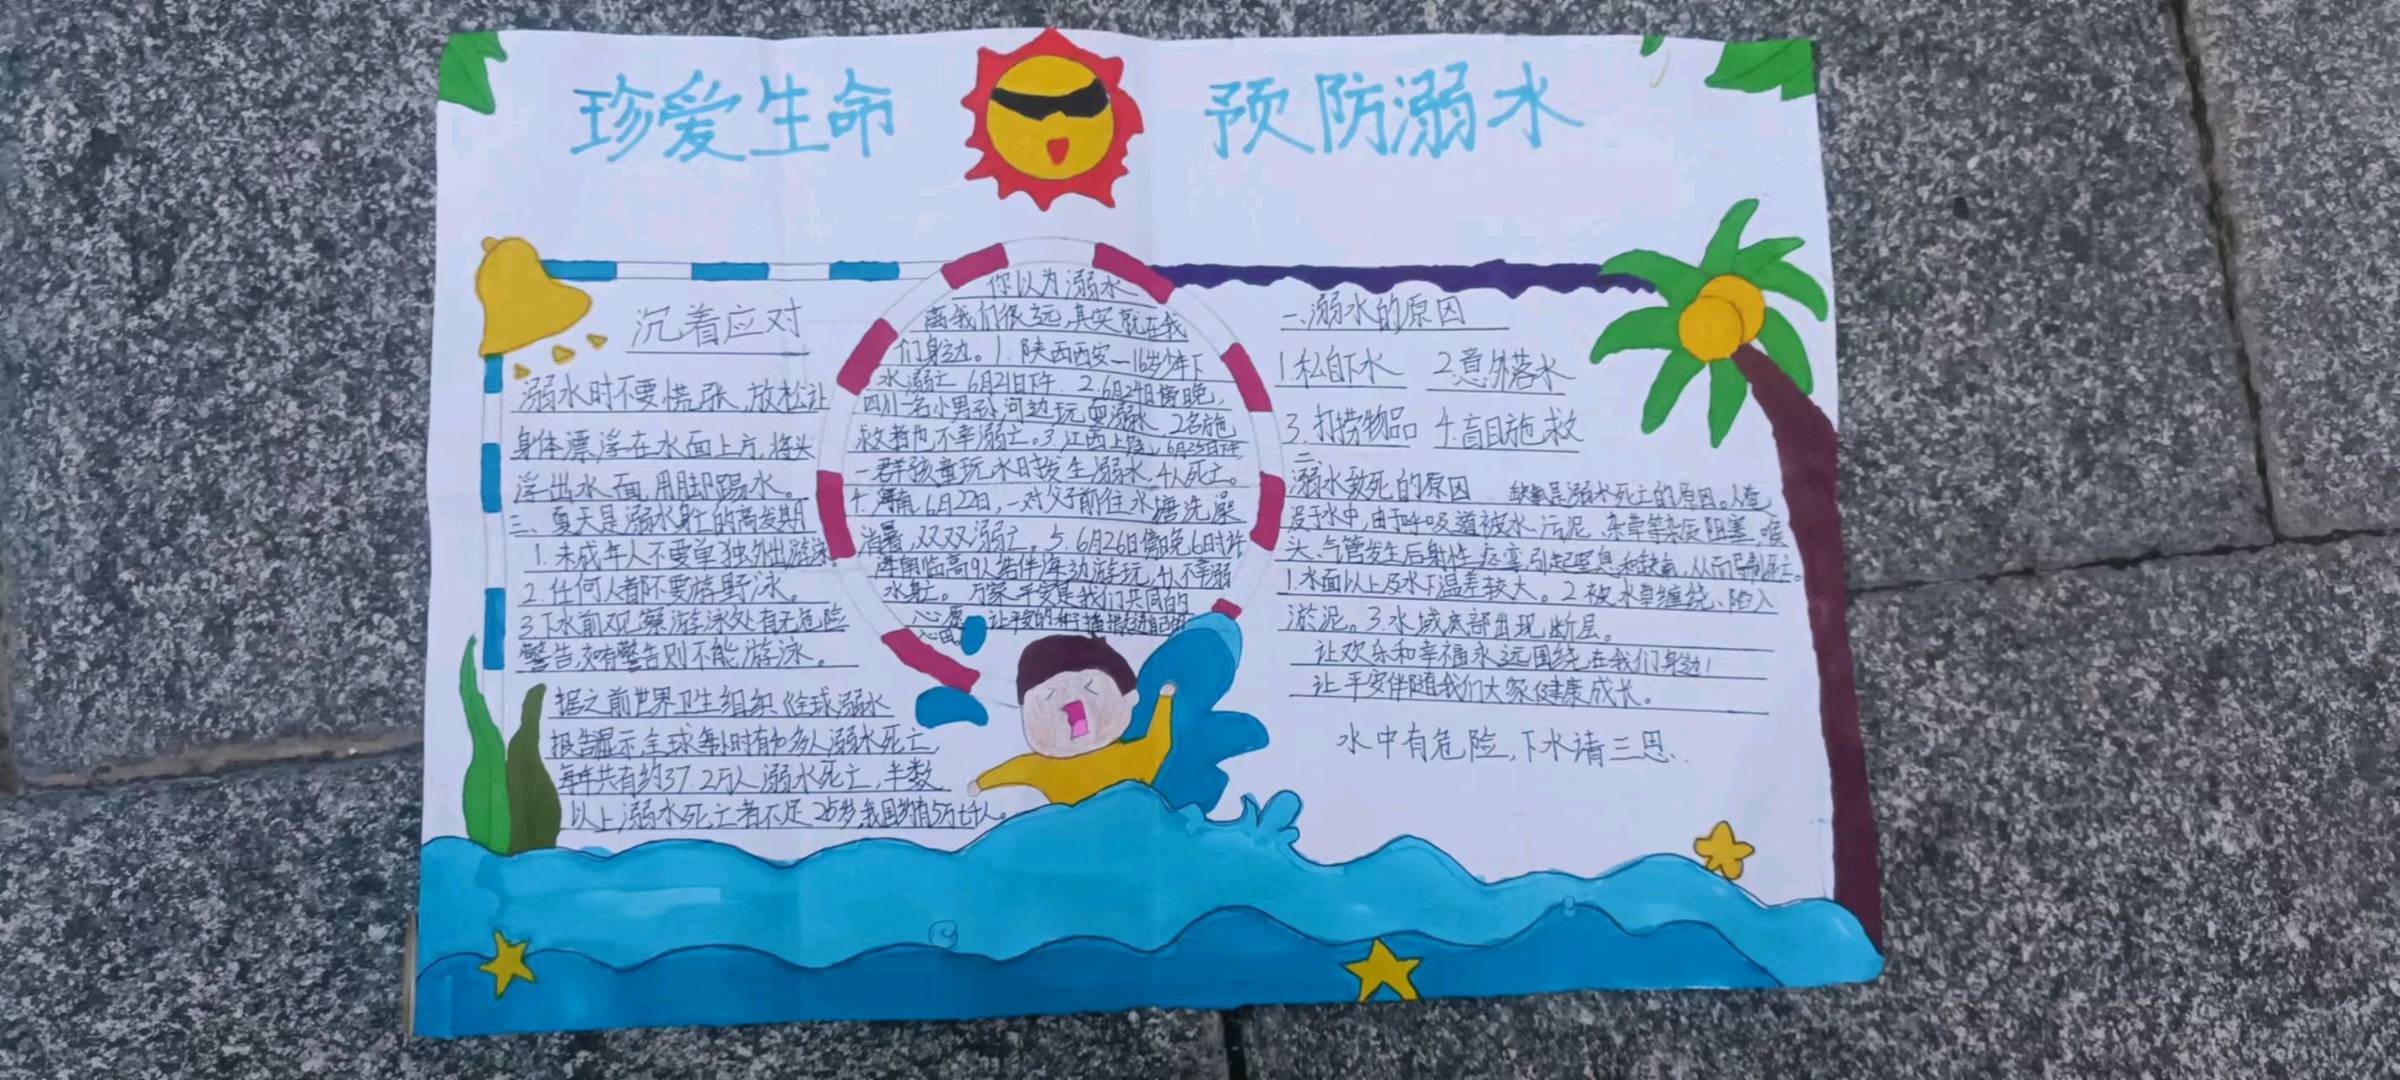 珍爱生命 预防溺水
沉着应对
溺水时不要慌张,放松让
身体漂浮在水面上方,将头
浮出水面,用脚踢水。
三、夏天是溺水身亡的高发期
1.未成年人不要单独外出游泳
2.任何人都不要游野泳。
3下水前观察游泳处有无危险
警告,有警告则不能游泳。
据之前世界卫生组织《全球溺水
报告显示,全球每小时有40多人溺水死亡,
每年共有约37.2万人溺水死亡,半数
以上溺水死亡者不足25岁,我国约有5万七千人。
你以为溺水
离我们很远,其实就在我
们身边。1.陕西西安一16岁少年下
水溺亡 6月21日下午.2.6月24日傍晚,
四川一名小男孩河边玩耍溺水 2名施
救者也不幸溺亡。3.江西上饶,6月25日下午
一群孩童玩水时发生溺水,4人死亡。
4.海南,6月22日,一对父子前往水塘洗澡
消暑,双双溺亡。5.6月26日傍晚6时许
海南临高9人结伴海边游玩,4人不幸溺
水身亡。万家平安是我们共同的
心愿 让平安的种子播撒进自己的
心田
一、溺水的原因
1.私自下水 2.意外落水
3.打捞物品 4.盲目施救
二、
溺水致死的原因 缺氧是溺水死亡的原因。人淹
没于水中,由于呼吸道被水、污泥、杂草等杂质阻塞,喉
头、气管发生后射性痉挛,引起窒息和缺氧,从而导制死亡。
1.水面以上及水下温差较大。2.被水草缠绕、陷入
淤泥。3.水域底部出现断层。
让欢乐和幸福永远围绕在我们身边!
让平安伴随我们大家健康成长。
水中有危险,下水请三思.